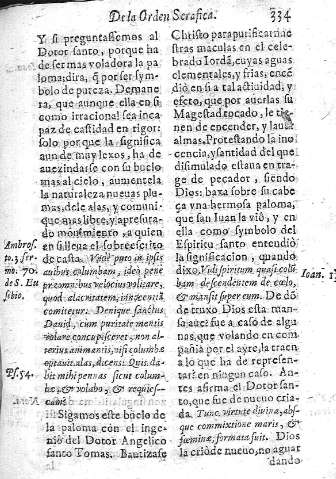 De la Orden Serafica.
334
Y si preguntassemos al
Dotor santo, porque ha
de ser mas voladora la pa
loma; dira, q̃ por ser sym
bolo de pureza. De mane
ra, que aunque ella en si
como irracional sea inca
paz de castidad en rigor:
solo porque la significa
aun de muy lexos, ha de
avezindarse con su buelo
mas al cielo, aumentela
la naturaleza nuevas plu
mas, dele alas, y comuni
que mas libre, y apresura
do movimiento, a quien
en si lleva el sobreescrito
de casta. Vide puto in ipsis
avibus columbam, ideo pene
præ omnibus velocius volitare,
quod alacritatem, innocentia
comitetur. Denique sanctus
David, cum puritate mentis
volare concupisceret, non al-
terius animantis, nisi columbæ
optavit alas, dicens: Quis da-
bit mihi pennas sicut colum-
bæ, & volabo, & requies-
cam?
Sigamos este buelo de
la paloma con el inge-
nio del Dotor Angelico
santo Tomas. Bautizase
Ambros.
to. 5. ser
mo. 70.
de S. Eu
sebio.
Ps. 54.
Christo para purificar nue
stras maculas en el cele-
brado Iordã, cuyas aguas
elementales, y frias, encẽ
dio en si a tal actividad, y
efeto, que por averlas su
Magestad tocado, le tie-
nen de encender, y lavar
almas. Protestando la ino
cencia, y santidad del que
dissimulado estava en tra-
ge de pecador, siendo
Dios: baxa sobre su cabe
ça una hermosa paloma,
que san Iuan la viò, y en
ella como symbolo del
Espiritu santo entendiò
la significacion, quando
dixo, Vidi spiritum quasi colũ
bam descendentem de cælo,
& mansit super eum. De dõ
de truxo Dios esta man-
sa ave? fue a caso de algu-
nas, que volando en com
pañia por el ayre, la traen
a lo que ha de represen-
tar? en ningun caso. An-
tes afirma el Dotor san-
to, que fue de nuevo cria-
da. Tunc virtute divina, abs-
que commixtione maris, &
fœminæ, formata fuit. Dios
la criò de nuevo, no aguar
dando
Ioan. 1